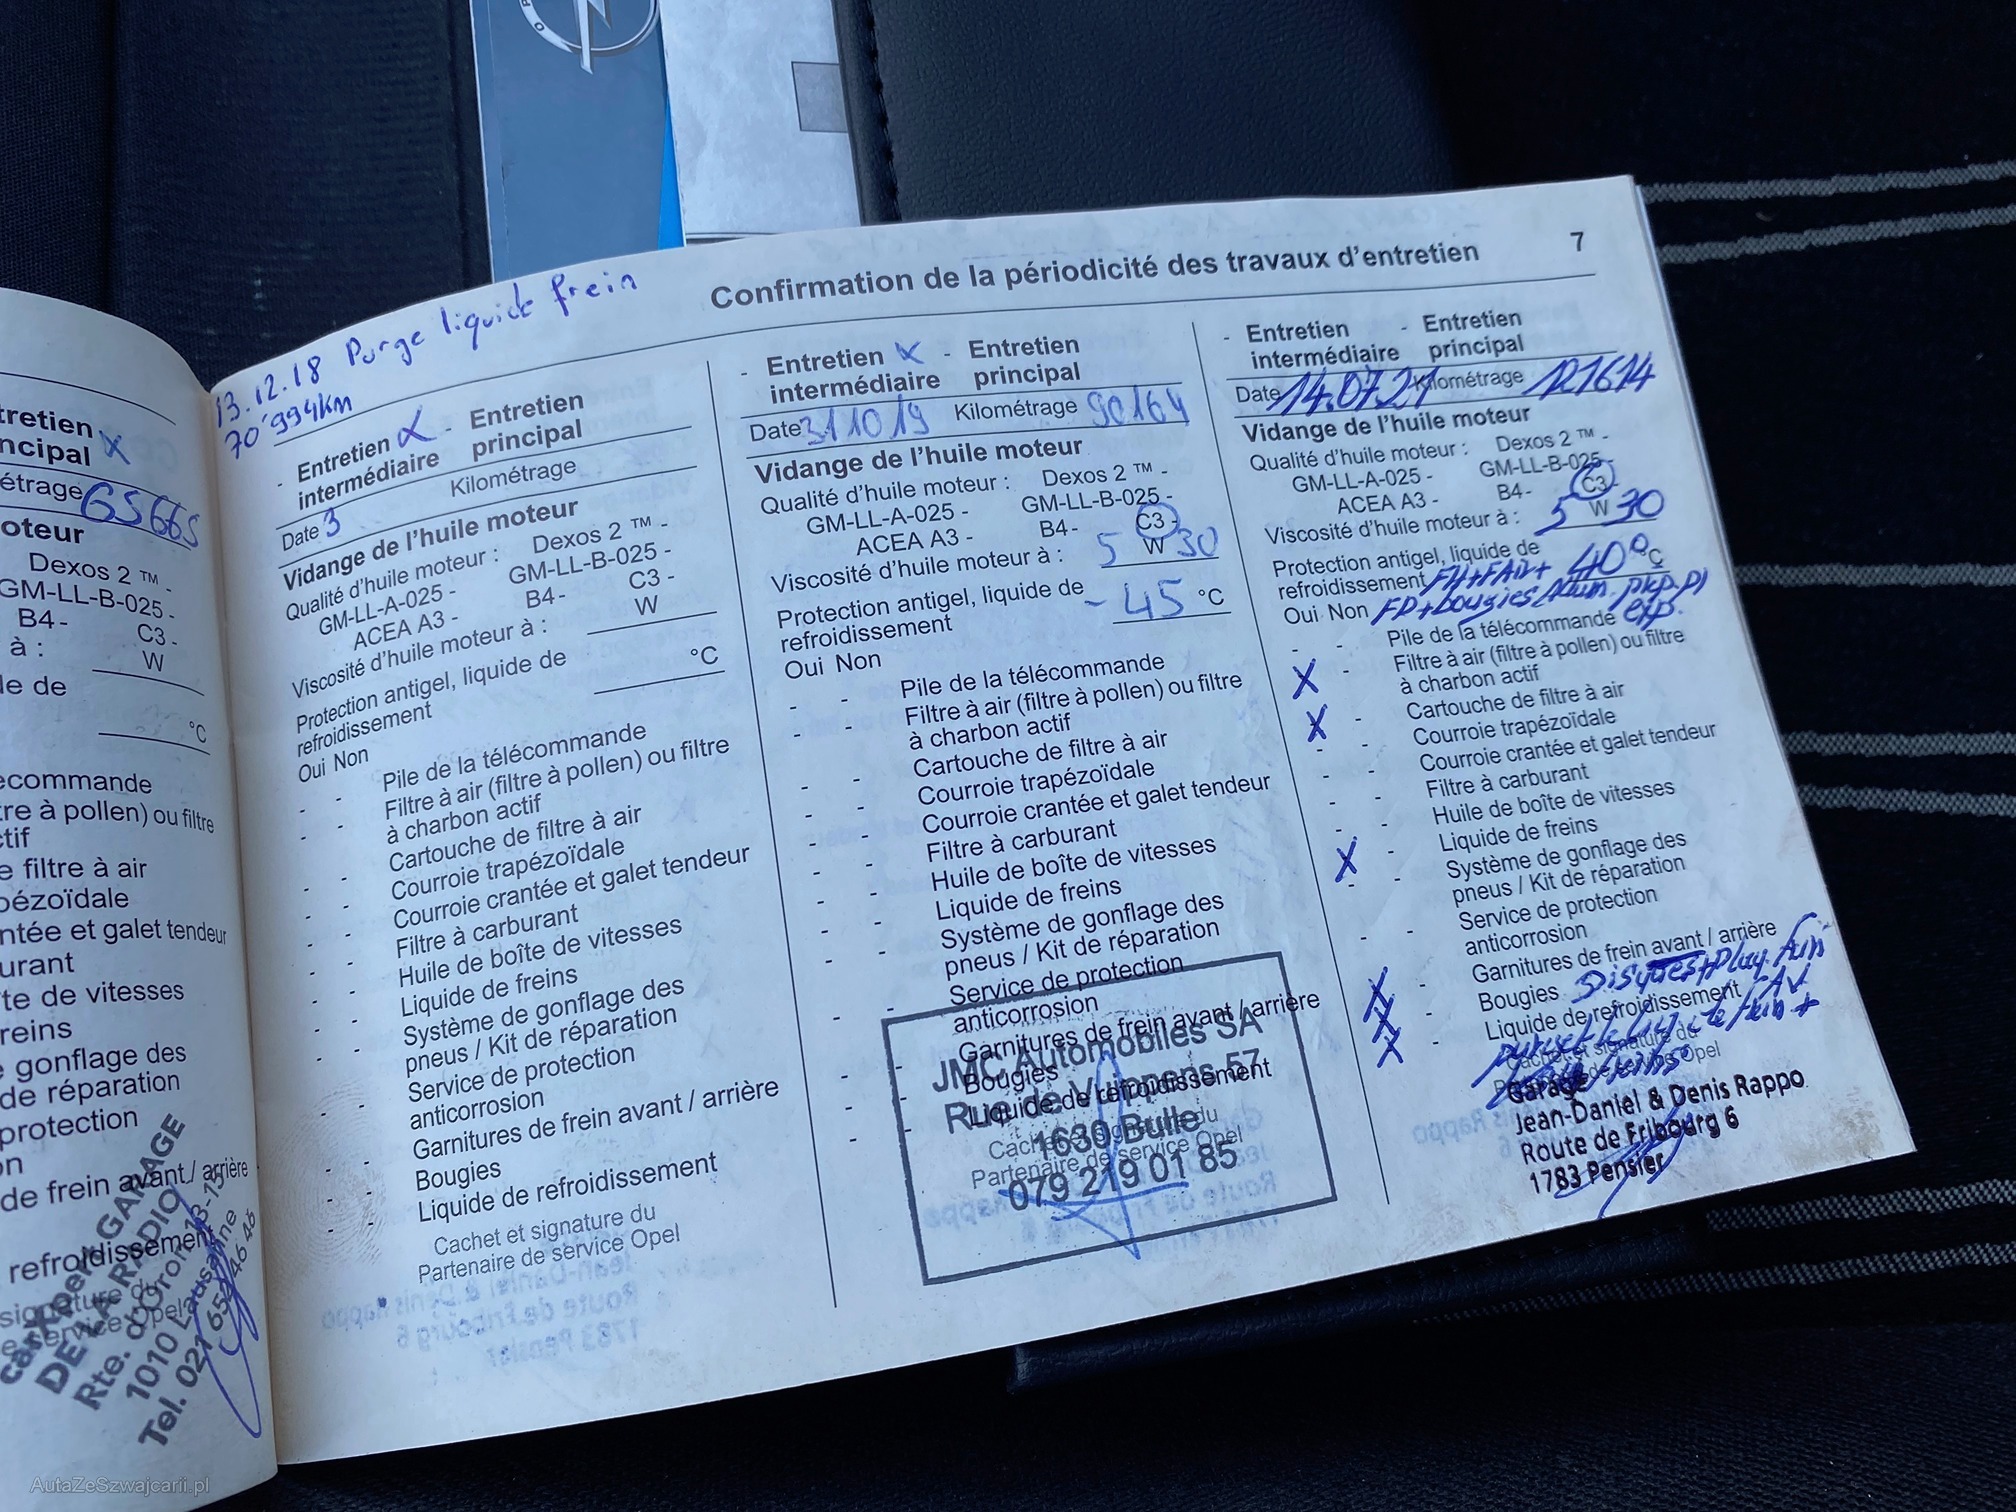 Confirmation de la périodicité des travaux d'entretien 7
tretien
ncipal x
étrage 65665
oteur
Dexos 2 ™ -
GM-LL-B-025 -
B4 - C3 -
à : W
le de
°C
écommande
re à pollen) ou filtre
ctif
e filtre à air
pézoïdale
ntée et galet tendeur
urant
te de vitesses
reins
e gonflage des
de réparation
protection
n
de frein avant / arrière
refroidissement
signature du
e service Opel
carXpert GARAGE
DE LA RADIO
Rte. d'Oron 13-15
1010 Lausanne
Tel. 021 652 46 46
13.12.18 Purge liquide frein
70'994km
- Entretien x - Entretien
intermédiaire principal
Date 3 Kilométrage
Vidange de l'huile moteur
Qualité d'huile moteur : Dexos 2 ™ -
GM-LL-A-025 - GM-LL-B-025 -
ACEA A3 - B4 - C3 -
Viscosité d'huile moteur à : W
Protection antigel, liquide de
refroidissement °C
Oui Non
- - Pile de la télécommande
- - Filtre à air (filtre à pollen) ou filtre
à charbon actif
- - Cartouche de filtre à air
- - Courroie trapézoïdale
- - Courroie crantée et galet tendeur
- - Filtre à carburant
- - Huile de boîte de vitesses
- - Liquide de freins
- - Système de gonflage des
pneus / Kit de réparation
- - Service de protection
anticorrosion
- - Garnitures de frein avant / arrière
- - Bougies
- - Liquide de refroidissement
Cachet et signature du
Partenaire de service Opel
- Entretien x - Entretien
intermédiaire principal
Date 311019 Kilométrage 90164
Vidange de l'huile moteur
Qualité d'huile moteur : Dexos 2 ™ -
GM-LL-A-025 - GM-LL-B-025 -
ACEA A3 - B4 - C3 -
Viscosité d'huile moteur à : 5 W 30
Protection antigel, liquide de
refroidissement - 45 °C
Oui Non
- - Pile de la télécommande
- - Filtre à air (filtre à pollen) ou filtre
à charbon actif
- - Cartouche de filtre à air
- - Courroie trapézoïdale
- - Courroie crantée et galet tendeur
- - Filtre à carburant
- - Huile de boîte de vitesses
- - Liquide de freins
- - Système de gonflage des
pneus / Kit de réparation
- - Service de protection
anticorrosion
- - Garnitures de frein avant / arrière
- - Bougies
- - Liquide de refroidissement
Cachet et signature du
Partenaire de service Opel
JMC Automobiles SA
Rue de Vuippens 57
1630 Bulle
079 219 01 85
- Entretien - Entretien
intermédiaire principal
Date 14.07.21 Kilométrage 121614
Vidange de l'huile moteur
Qualité d'huile moteur : Dexos 2 ™ -
GM-LL-A-025 - GM-LL-B-025 -
ACEA A3 - B4 - C3
Viscosité d'huile moteur à : 5 W 30
Protection antigel, liquide de
refroidissement FH+FAir+ 40° °C
Oui Non FP+bougies
- - Pile de la télécommande exp.
X - Filtre à air (filtre à pollen) ou filtre
à charbon actif
X - Cartouche de filtre à air
- - Courroie trapézoïdale
- - Courroie crantée et galet tendeur
- - Filtre à carburant
- - Huile de boîte de vitesses
X - Liquide de freins
- - Système de gonflage des
pneus / Kit de réparation
- - Service de protection
anticorrosion
X - Garnitures de frein avant / arrière
X - Bougies Disques+Plaq. frein
X - Liquide de refroidissement AV.
Cachet et signature du
Partenaire de service Opel
Garage
Jean-Daniel & Denis Rappo
Route de Fribourg 6
1783 Pensier
AutaZeSzwajcarii.pl